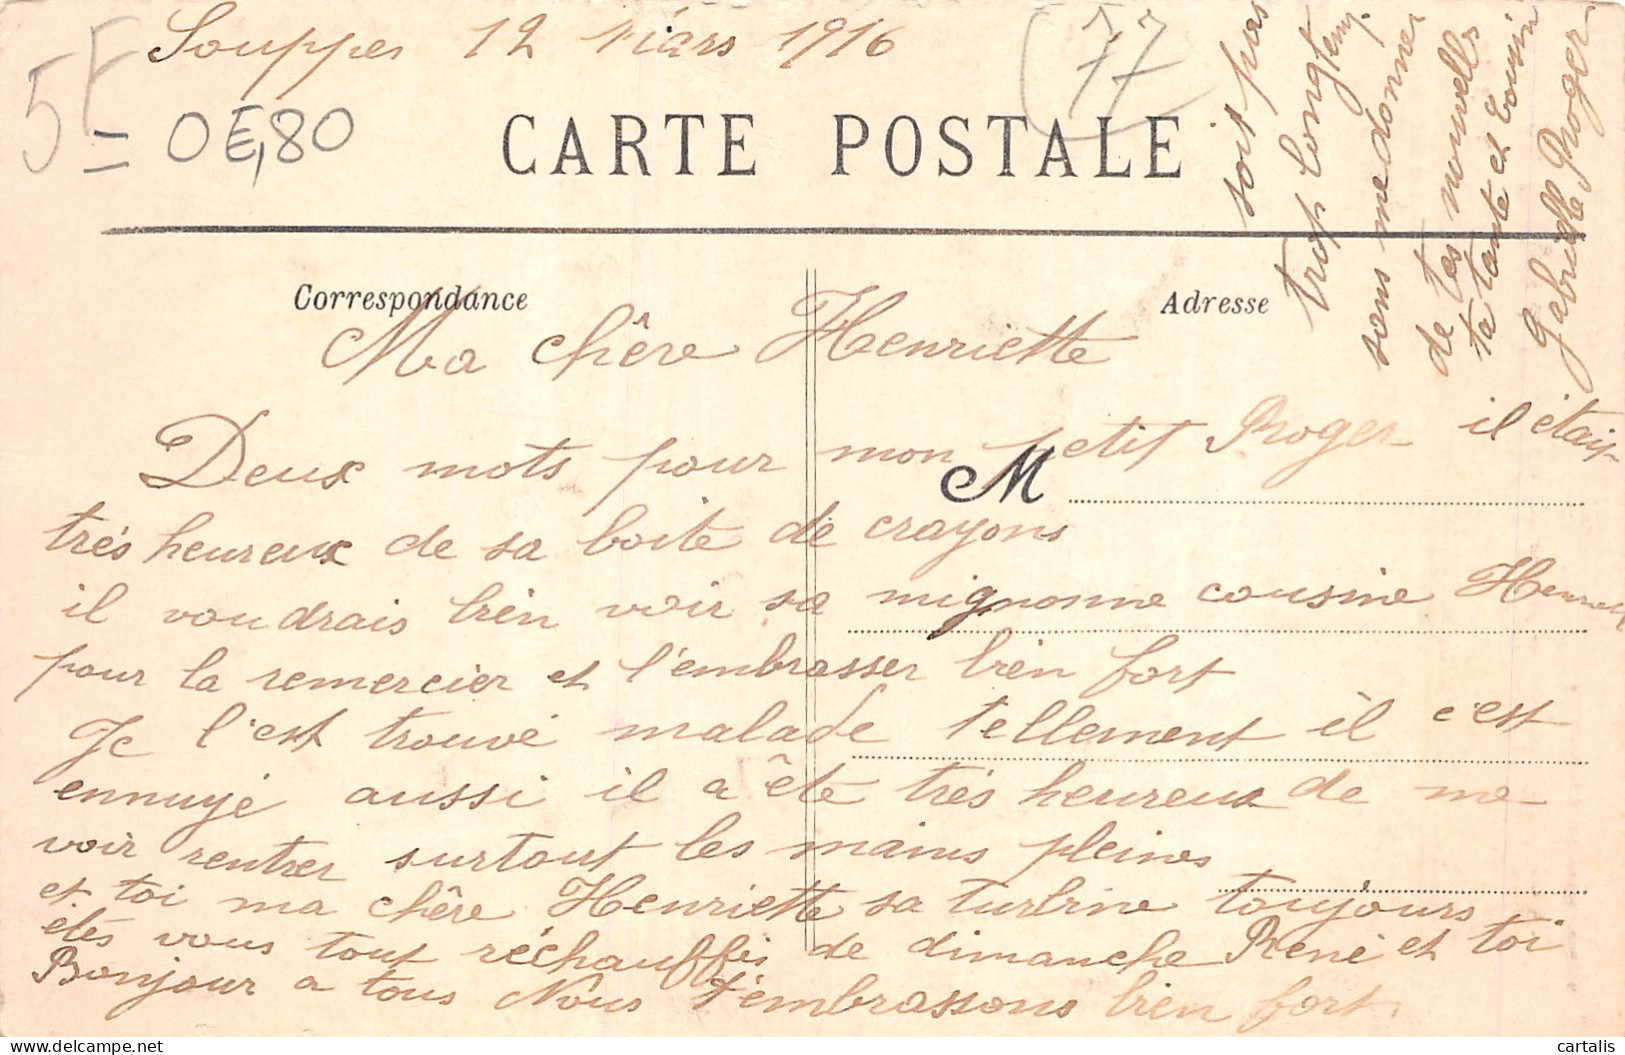 Souppes 12 Mars 1916
(77)
5F
= 0E,80
CARTE POSTALE
Correspondance
Adresse
Ma chêre Henriette
Deux mots pour mon petit Roger il était
M
très heureux de sa boite de crayons
il voudrais bien voir sa mignonne cousine
pour la remercier et l'embrasser bien fort
Je l'est trouvé malade tellement il c'est
ennuyé aussi il a êté très heureux de me
voir rentrer surtout les mains pleines
et toi ma chêre Henriette sa turbine toujours
étés vous tout réchauffés de dimanche René et toi
Bonjour a tous Nous t'embrassons bien fort
soit pas
trop longtemp
sans me donner
de tes nouvelles
ta tante et Cousin
Gabrielle Roger
cartalis
delcampe.net